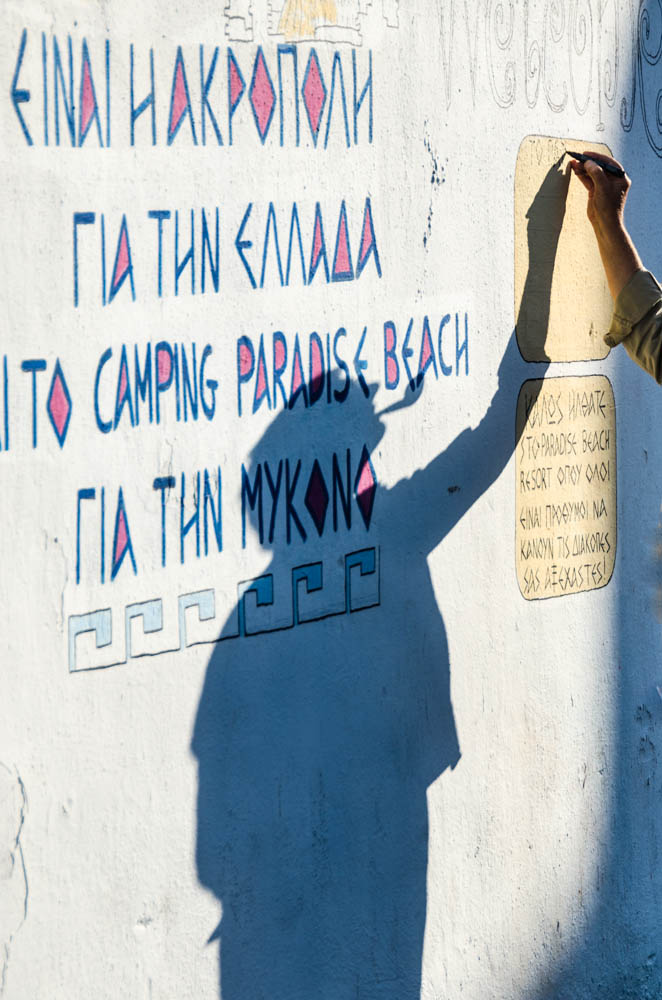 ΕΙΝΑΙ Η ΑΚΡΟΠΟΛΗ
ΓΙΑ ΤΗΝ ΕΛΛΑΔΑ
ΤΟ CAMPING PARADISE BEACH
ΓΙΑ ΤΗΝ ΜΥΚΟΝΟ
ΤΟ
ΚΑΛΩΣ ΗΛΘΑΤΕ
ΣΤΟ PARADISE BEACH
RESORT ΟΠΟΥ ΟΛΟΙ
ΕΙΝΑΙ ΠΡΟΘΥΜΟΙ ΝΑ
ΚΑΝΟΥΝ ΤΙΣ ΔΙΑΚΟΠΕΣ
ΣΑΣ ΑΞΕΧΑΣΤΕΣ!